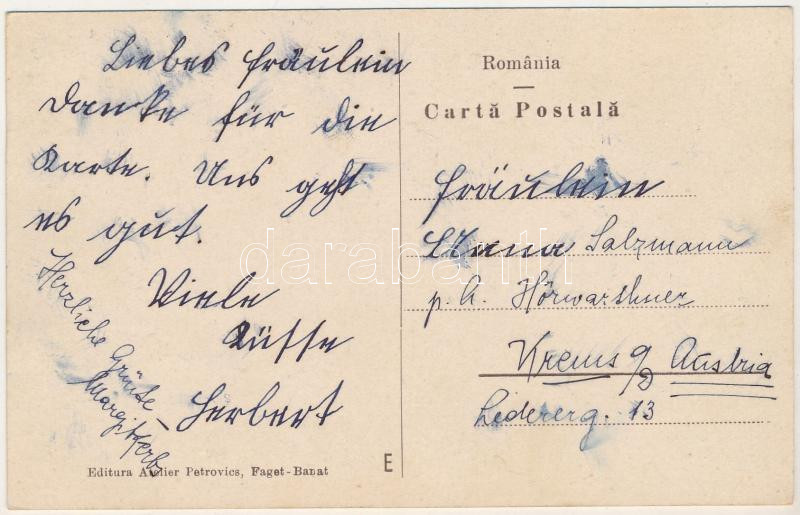 Liebes Fräulein
Danke für die
Karte. Uns geht
es gut.
Viele
Küsse
Herbert
Herzliche Grüße
Margit
România
Cartă Postală
Fräulein
Salzmann
p. A. Hörwarthner
Krems a/D Austria
Lederg. 13
Editura Atelier Petrovics, Faget-Banat
E
darabanth